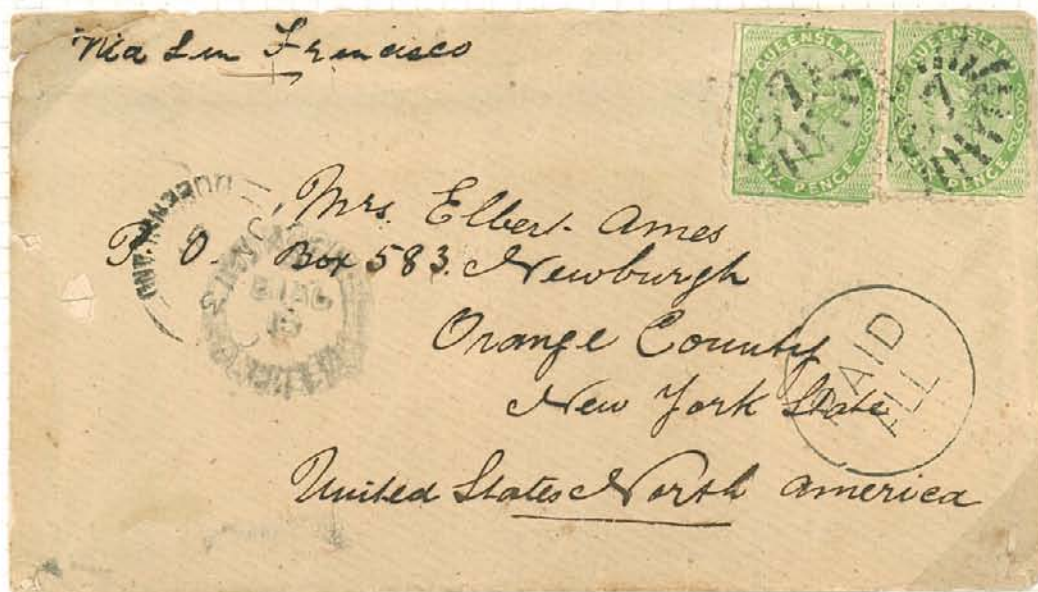 Via San Francisco
QUEENSLAND
SIX PENCE
QUEENSLAND
SIX PENCE
Mrs. Elbert Ames
P. O. Box 583. Newburgh
Orange County
New York State
United States North America
QUEENSLAND
PAID
ALL